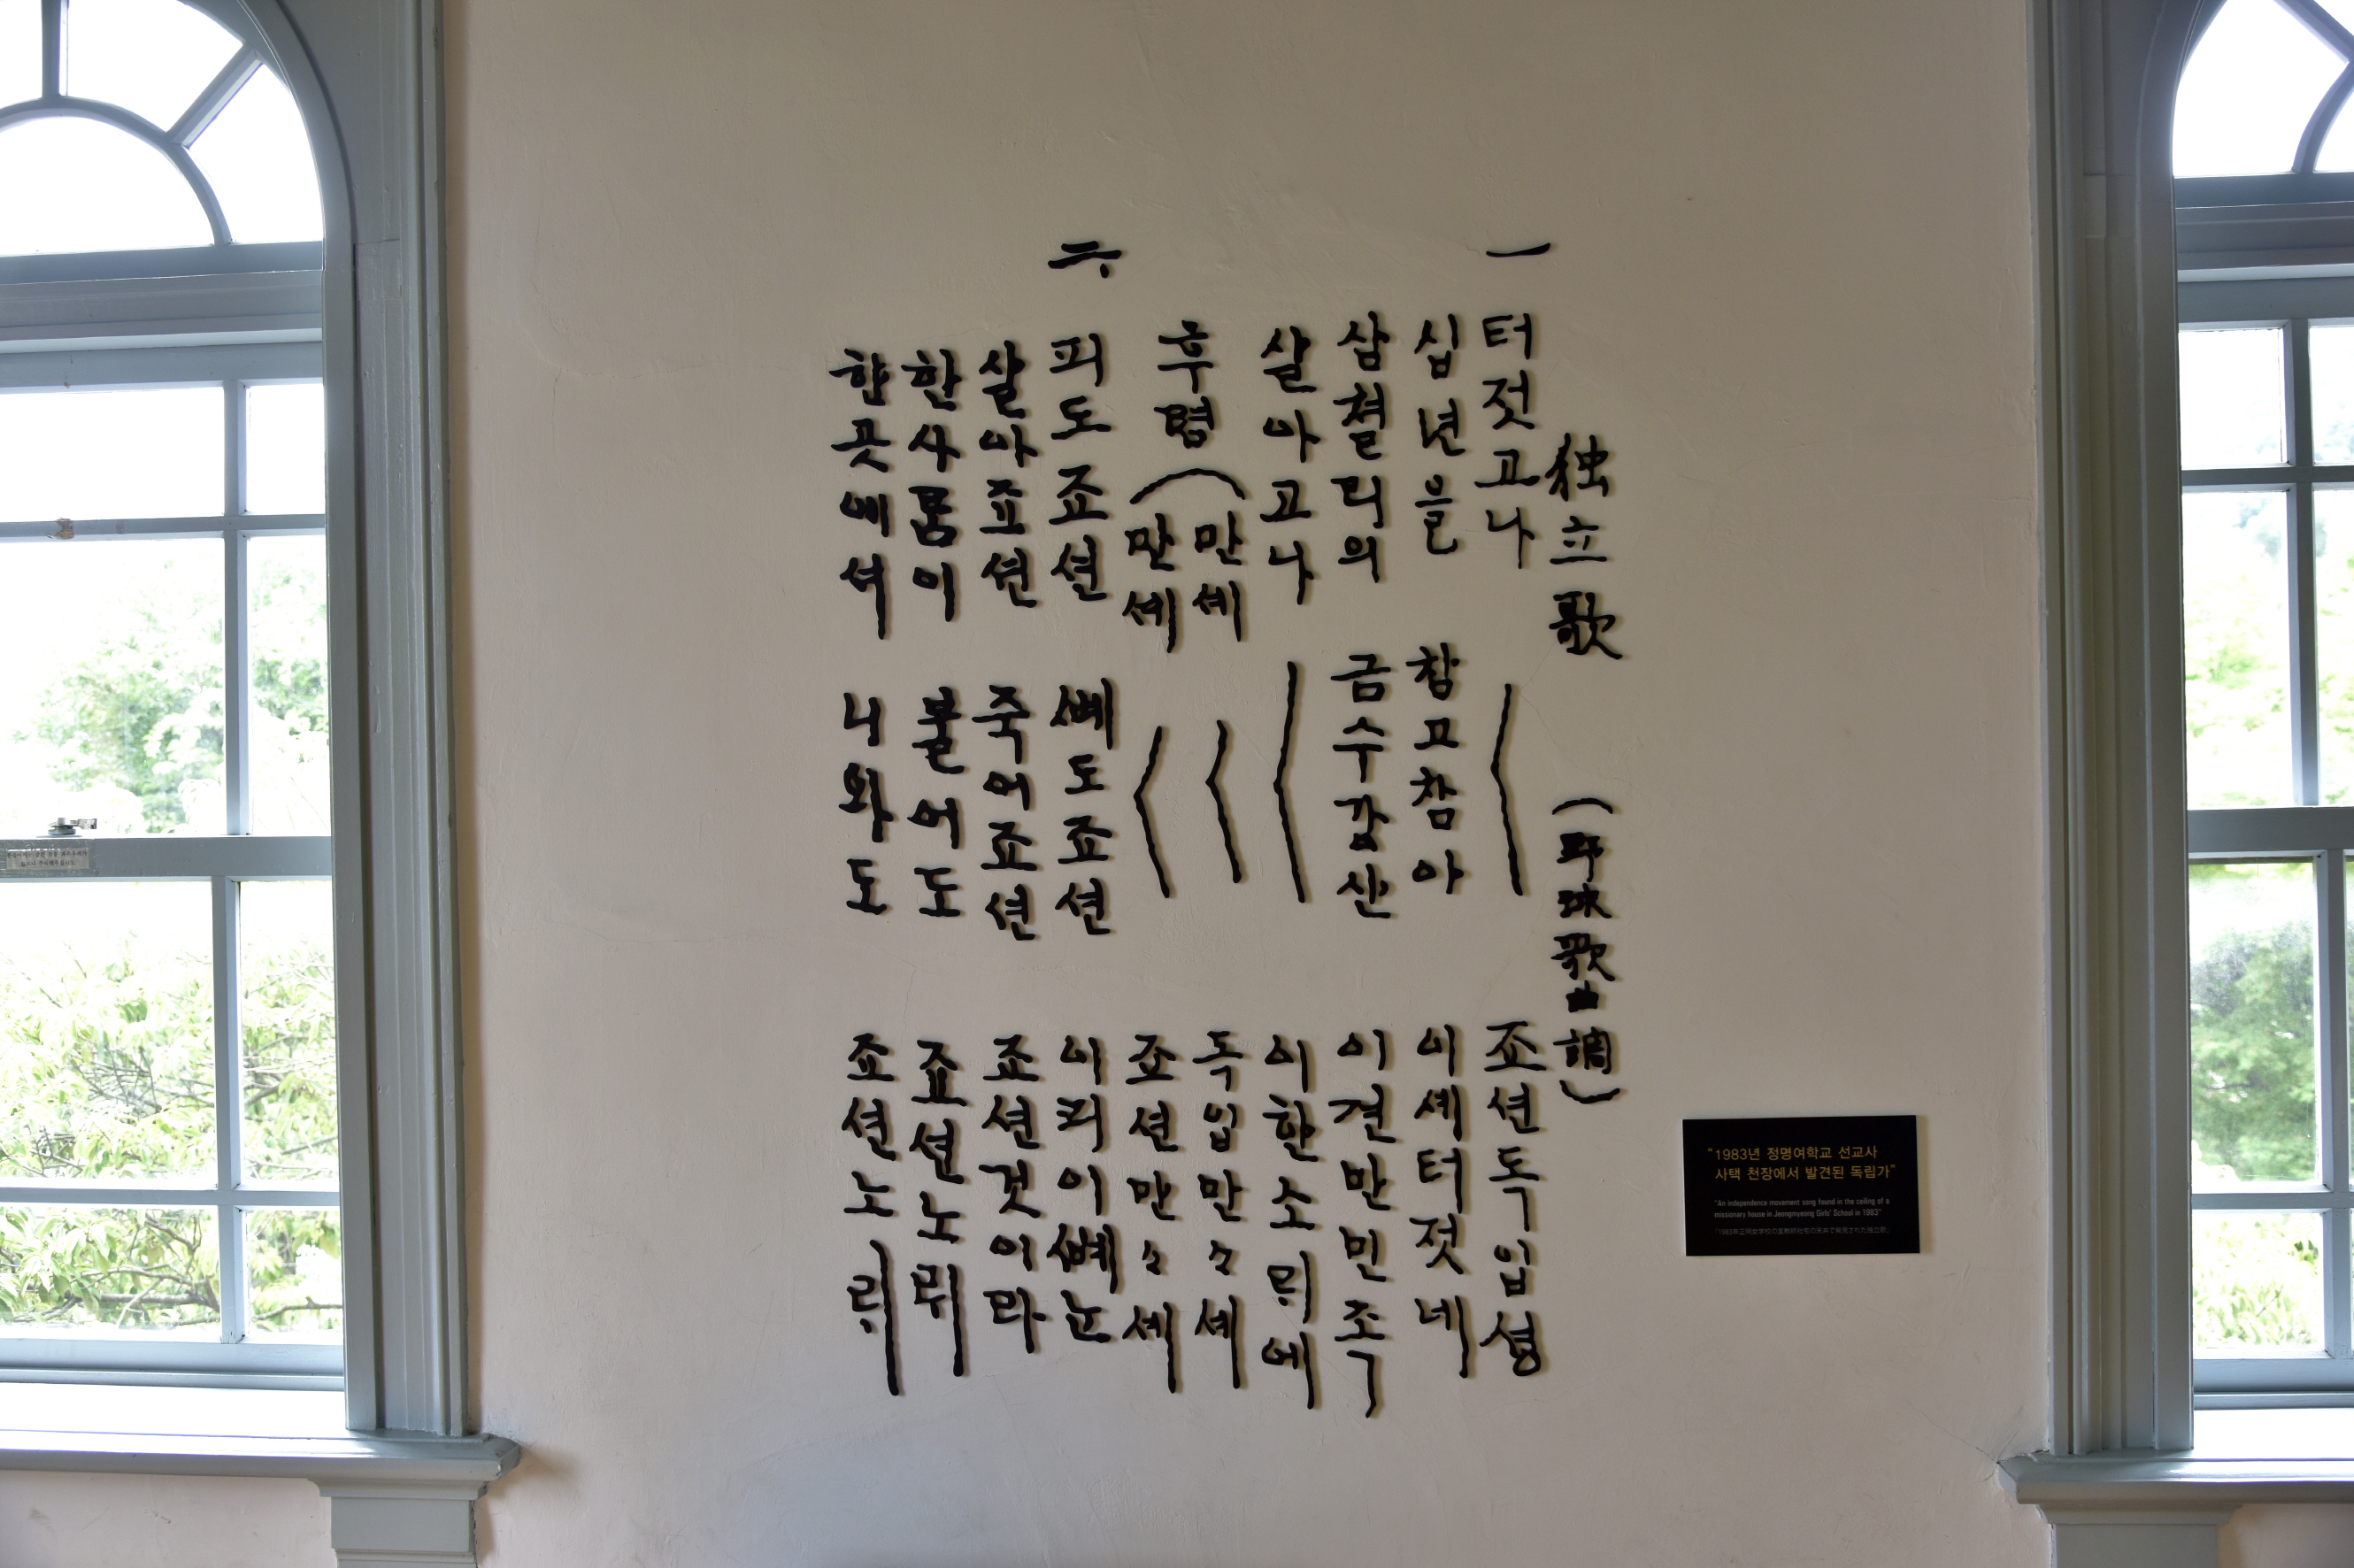 独立歌 (野球歌曲調)
一 터젓고나 〱 죠션독입셩
십년을 참고참아 이셰터젓네
삼쳘리의 금수갑산 이견만민족
살아고나 〱 이한소ᄅᆡ에
후렴 (만셰 〱 독입만々셰
만셰 〱 죠션만々셰
二、 피도죠션 ᄲᅨ도죠션 이피이ᄲᅨ눈
살아죠션 죽어죠션 죠션것이라
한사룸이 불어도 죠션노ᄅᆡ
한곳에셔 나와도 죠션노ᄅᆡ
“1983년 정명여학교 선교사
사택 천장에서 발견된 독립가”
"An independence movement song found in the ceiling of a
missionary house in Jeongmyeong Girls' School in 1983"